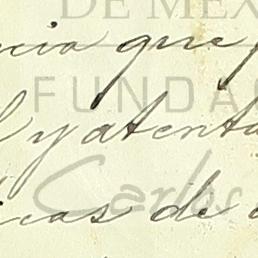 DE MÉX
ncia que
FUNDA
l y atenta
Carlos
icas de